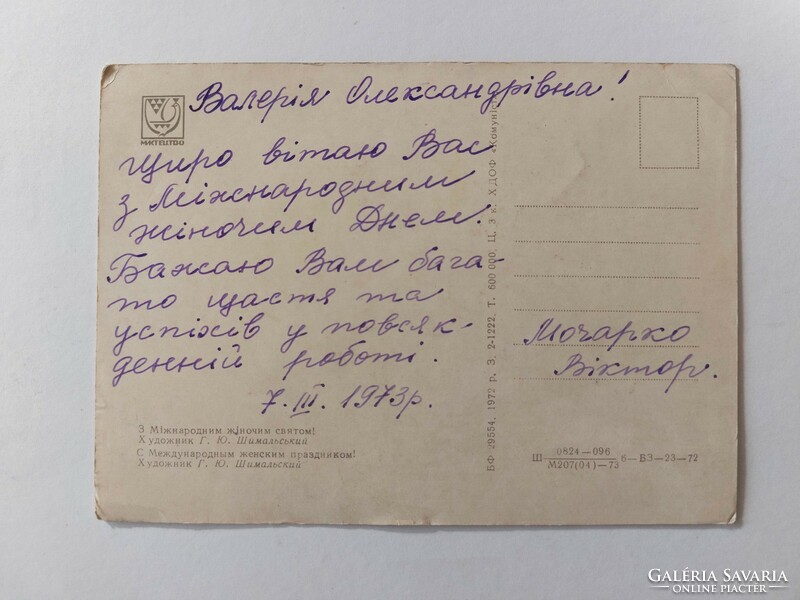 Валерія Олександрівна!
Щиро вітаю Вас
з Міжнародним
жіночим Днем.
Бажаю Вам бага-
то щастя та
успіхів у повсяк-
денній роботі.
7. III. 1973р.
Мочарко
Віктор.
З Міжнародним жіночим святом!
Художник Г. Ю. Шимальський
С Международным женским праздником!
Художник Г. Ю. Шимальский
БФ 29554. 1972 р. З. 2-1222. Т. 600 000. Ц. 3 к. ХДОФ «Комуніст»
Ш 0824—096 6—БЗ—23—72
М207(04)—73
GALÉRIA SAVARIA
ONLINE PIACTÉR